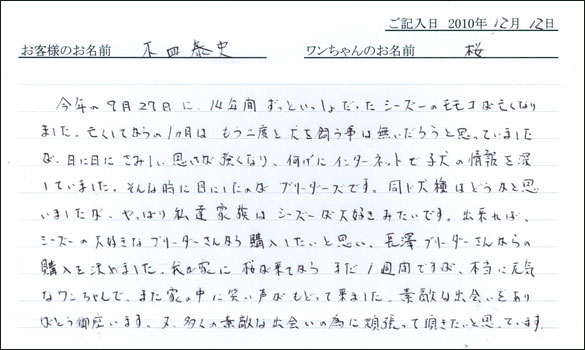 ご記入日 2010年 12月 12日
お客様のお名前 木田泰史 ワンちゃんのお名前 桜
今年の9月27日に、14年間ずっといっしょだったシーズーのモモコが亡くなり
ました。亡くしてからの1ヵ月は もう二度と犬を飼う事は無いだろうと思っていました
が、日に日に さみしい思いが強くなり、何げに インターネットで子犬の情報を探
していました。そんな時に目にしたのが ブリーダーズです。同じ犬種はどうかと思
いましたが、やっぱり私達家族は シーズーが大好きみたいです。出来れば、
シーズーの大好きなブリーダーさんから購入したいと思い、長澤ブリーダーさんからの
購入を決めました。我が家に 桜が来てから まだ1週間ですが、本当に元気
なワンちゃんで、また家の中に笑い声がもどって来ました。素敵な出会いをあり
がとう御座います。又、多くの素敵な出会いの為に頑張って頂きたいと思っています。